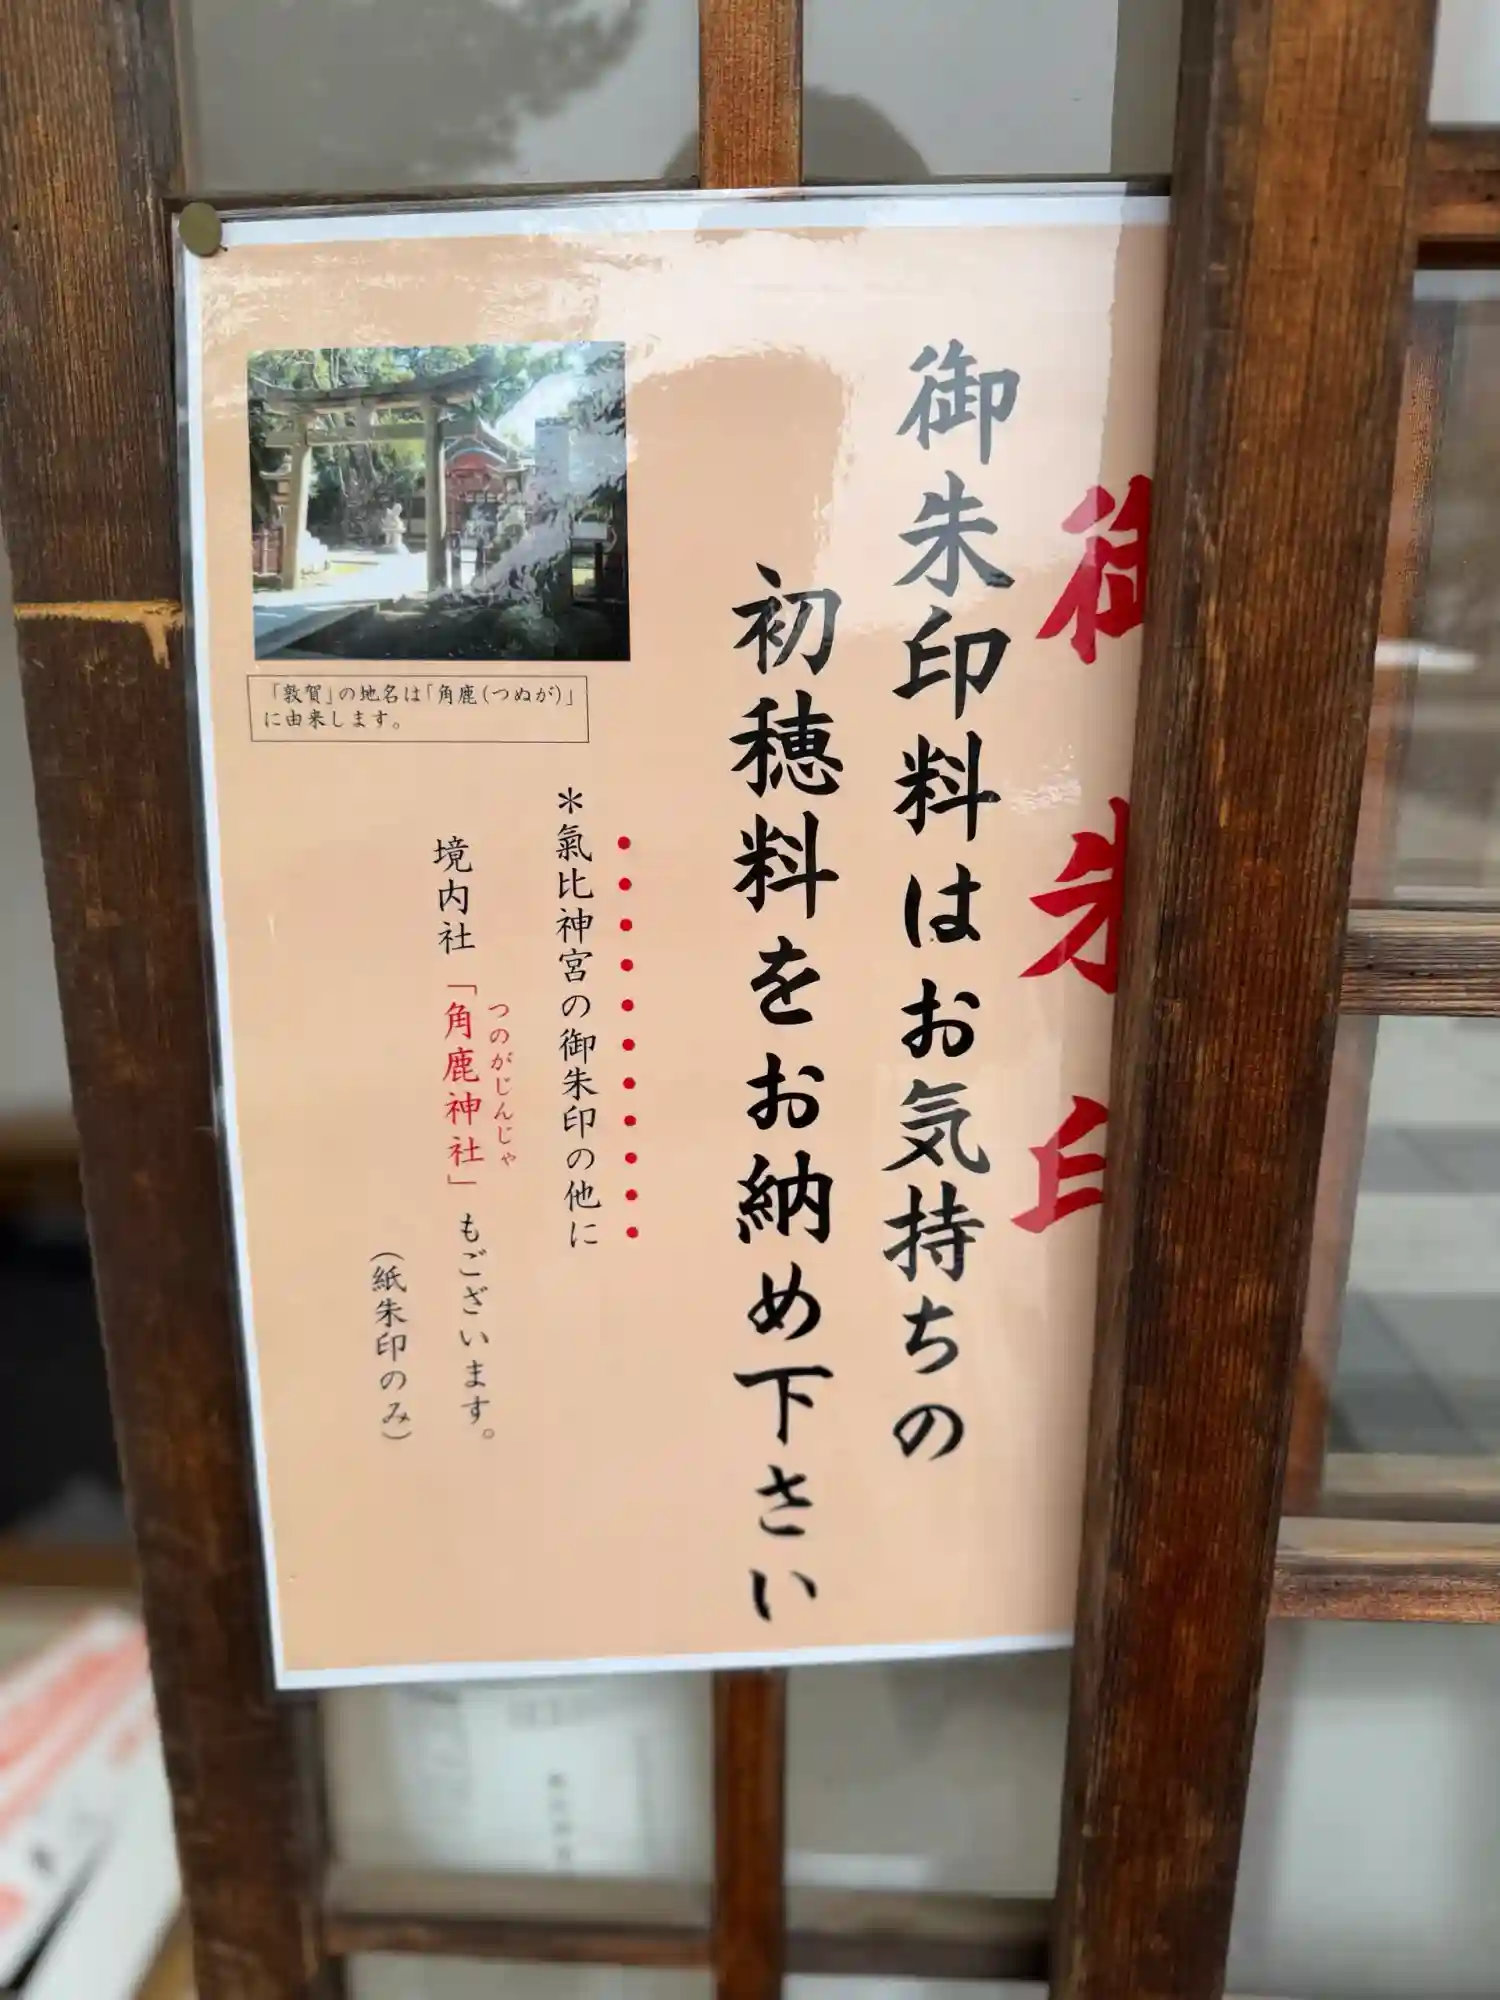 御朱印
御朱印料はお気持ちの
初穂料をお納め下さい
「敦賀」の地名は「角鹿(つぬが)」
に由来します。
＊氣比神宮の御朱印の他に
つのがじんじゃ
境内社「角鹿神社」もございます。
(紙朱印のみ)